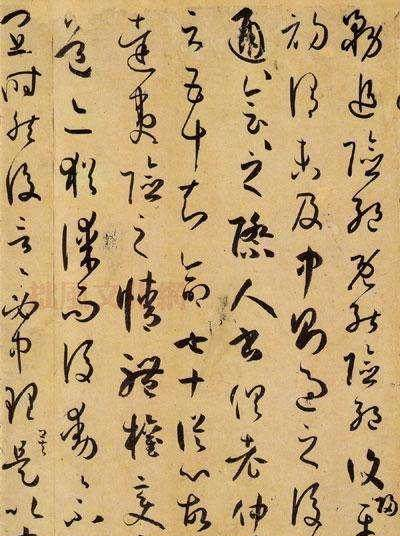 務追險絕既能險絕復歸平
初謂未及中則過之後
通會之際人書俱老仲
云五十知命七十從心故
達夷險之情體權變
道亦猶謀而後動〻不
宜時然後言〻必中理矣是以